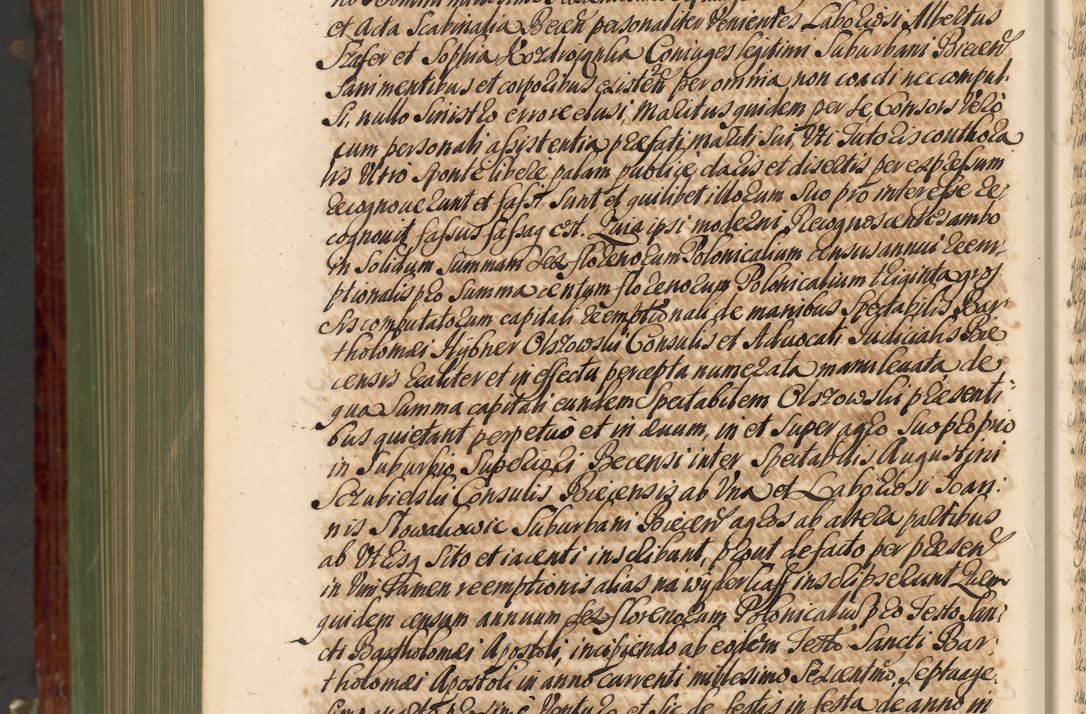 et Acta Scabinalia Becen personaliter venientes Laboriosi Albertus
Szafer et Sophia Coniuges legitimi Suburbani Biecen
Sani mentibus et corporibus existen per omnia non coacti nec compul
si, nullo Sinistro errore elusi, Maritus quidem per se Consors vero
cum personali assistentia præfati mariti sui, uti Tutoris conthora
lis Viro sponte libere palam publice claris et disertis per expressum
recognoverunt et fassi sunt et quilibet illorum suo pro interesse re
cognovit fassus fassaq est. Quia ipsi moderni Recognoscentes ambo
in Solidum Summam florenorum Polonicalium census annui reem
ptionalis pro Summa centum florenorum Polonicalium triginta gros
sis computatorum capitali reemptionali de manibus Spectabilis Bar
tholomæi Hybner Olszowski Consulis et Advocati Judicialis Bie
censis realiter et in effectu percepta numerata manulevata de
qua Summa capitali eundem Spectabilem Olszowski præsenti
bus quietant perpetuo et in ævum, in et super agro Suo proprio
in Suburbio Superiori Becensi inter Spectabilis Augustini
Consulis Biecensis ab Una et Laboriosi Joan:
nis Slowakowic Suburbani Biecen agros ab altera partibus
ab Utrisq Sito et iacenti inscribunt, prout de facto per præsen
in Vim tamen reemptionis alias na wyderkaff inscripserunt Quem
quidem censum annuum florenorum Polonicaliu pro Festo San:
cti Bartholomæi Apostoli, incipiendo ab eodem Festo Sancti Bar
tholomæi Apostoli in anno currenti millesimo Sexcentmo Septuage
Venturo et sic de festis in festa de anno in